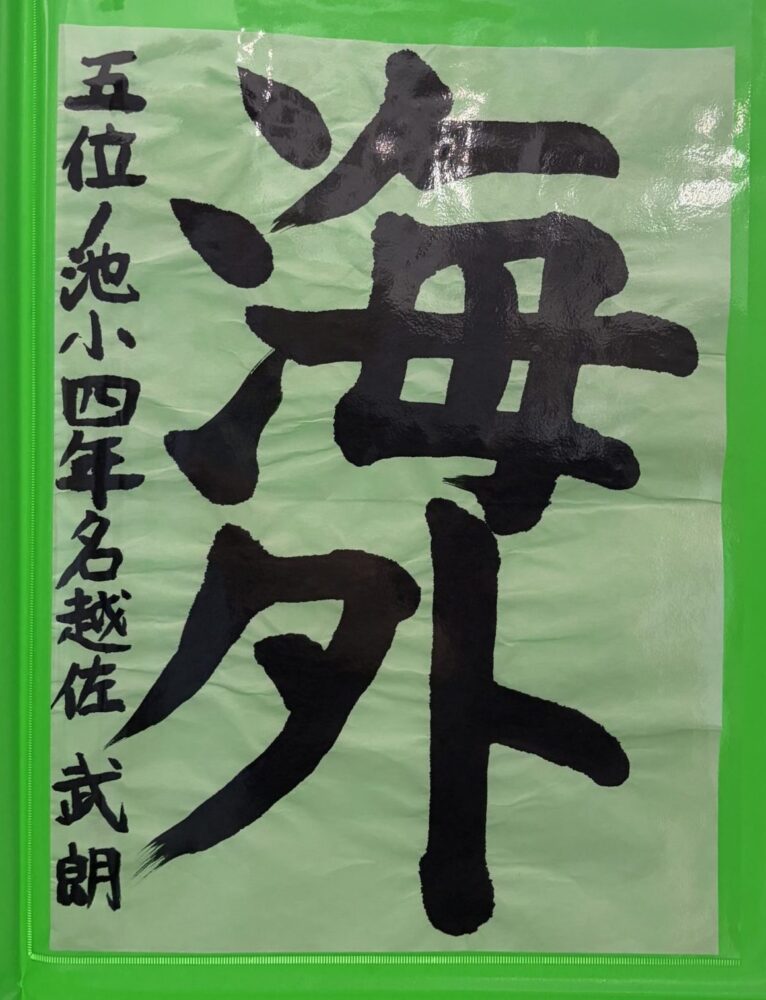 海外
五位ノ池小四年名越佐 武朗